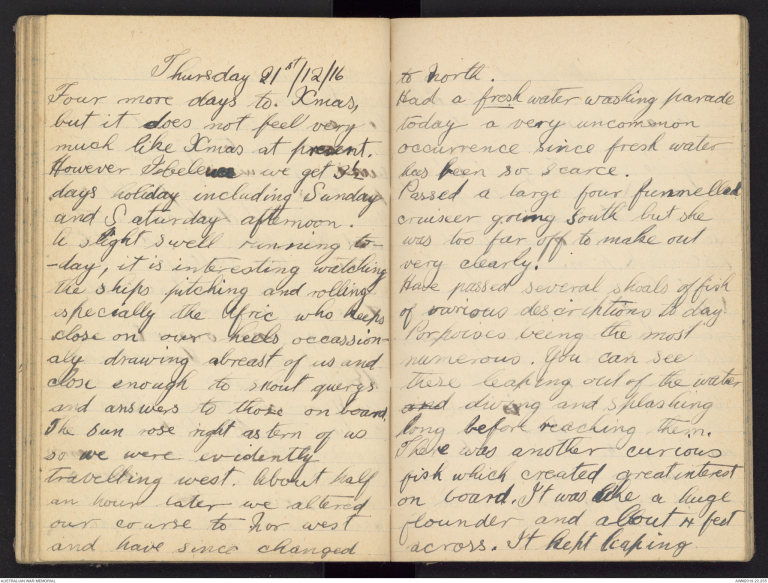 Thursday 21st/12/16
Four more days to Xmas,
but it does not feel very
much like Xmas at present.
However I we get
days holiday including Sunday
and Saturday afternoon.
A slight swell running to-
-day, it is interesting watching
the ships pitching and rolling
especially the Afric who keeps
close on our heels occassion-
aly drawing abreast of us and
close enough to shout querys
and answers to those on board.
The sun rose right astern of us
so we were evidently
travelling west. About half
an hour later we altered
our course to Nor west
and have since changed
to North.
Had a fresh water washing parade
today a very uncommon
occurrence since fresh water
has been so scarce.
Passed a large four funnelled
cruiseer going South but she
was too far off to make out
very clearly.
Have passed several shoals of fish
of various descriptions to day
Porpoises being the most
numerous. You can see
these leaping out of the water
and diving and splashing
long before reaching them.
There was another curious
fish which created great interest
on board. It was like a huge
flounder and about 4 feet
across. It kept leaping
AUSTRALIAN WAR MEMORIAL